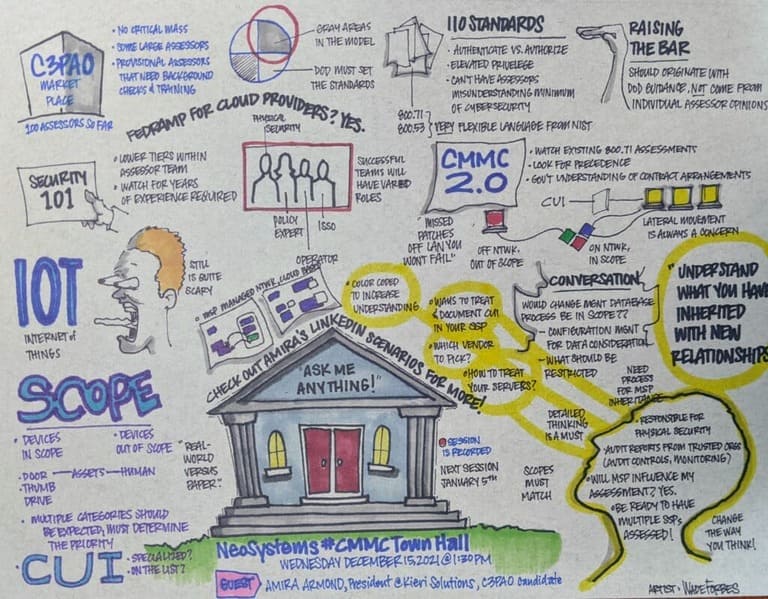 C3PAO
MARKET
PLACE
100 ASSESSORS SO FAR
• NO CRITICAL MASS
• SOME LARGE ASSESSORS
• PROVISIONAL ASSESSORS
THAT NEED BACKGROUND
CHECKS & TRAINING
GRAY AREAS
IN THE MODEL
DOD MUST SET
THE STANDARDS
110 STANDARDS
• AUTHENTICATE VS. AUTHORIZE
• ELEVATED PRIVELEGE
• CAN'T HAVE ASSESSORS
MISUNDERSTANDING MINIMUM
OF CYBERSECURITY
800.71
800.53
VERY FLEXIBLE LANGUAGE FROM NIST
RAISING
THE BAR
SHOULD ORIGINATE WITH
DOD GUIDANCE, NOT COME FROM
INDIVIDUAL ASSESSOR OPINIONS
FEDRAMP FOR CLOUD PROVIDERS? YES.
SECURITY
101
• LOWER TIERS WITHIN
ASSESSOR TEAM
• WATCH FOR YEARS
OF EXPERIENCE REQUIRED
PHYSICAL
SECURITY
POLICY
EXPERT
ISSO
OPERATOR
SUCCESSFUL
TEAMS WILL
HAVE VARED
ROLES
CMMC
2.0
• WATCH EXISTING 800.71 ASSESSMENTS
• LOOK FOR PRECEDENCE
• GOV'T UNDERSTANDING OF CONTRACT ARRANGEMENTS
CUI
"MISSED
PATCHES
OFF LAN YOU
WONT FAIL"
OFF NTWK,
OUT OF SCOPE
ON NTWK,
IN SCOPE
LATERAL MOVEMENT
IS ALWAYS A CONCERN
IOT
INTERNET of
THINGS
STILL
IS QUITE
SCARY
• MSP MANAGED NTWK, CLOUD BASED
• COLOR CODED
TO INCREASE
UNDERSTANDING
• WAYS TO TREAT
& DOCUMENT CUI
IN YOUR SSP
• WHICH VENDOR
TO PICK?
• HOW TO TREAT
YOUR SERVERS?
CONVERSATION
WOULD CHANGE MGNT DATABASE
PROCESS BE IN SCOPE??
— CONFIGURATION MGNT
FOR DATA CONSIDERATION
— WHAT SHOULD BE
RESTRICTED
"UNDERSTAND
WHAT YOU HAVE
INHERITED
WITH NEW
RELATIONSHIPS
CHECK OUT AMIRA'S LINKEDIN SCENARIOS FOR MORE!
"ASK ME
ANYTHING!"
NEED
PROCESS
FOR MSP
INHERITANCE
DETAILED
THINKING
IS A MUST
SCOPE
• DEVICES
IN SCOPE
• DEVICES
OUT OF SCOPE
• DOOR — ASSETS — HUMAN
• THUMB
DRIVE
• MULTIPLE CATEGORIES SHOULD
BE EXPECTED, MUST DETERMINE
THE PRIORITY
"REAL-
WORLD
VERSUS
PAPER."
SESSION
IS RECORDED
NEXT SESSION
JANUARY 5TH
SCOPES
MUST
MATCH
• RESPONSIBLE FOR
PHYSICAL SECURITY
• AUDIT REPORTS FROM TRUSTED ORGS
(AUDIT CONTROLS, MONITORING?)
• WILL MSP INFLUENCE MY
ASSESSMENT? YES.
• BE READY TO HAVE
MULTIPLE SSPs
ASSESSED!
CHANGE
THE WAY
YOU THINK!
• CUI
• SPECIALIZED?
• ON THE LIST?
NeoSystems #CMMC Town Hall
WEDNESDAY DECEMBER 15, 2021 @ 1:30 PM
GUEST
AMIRA ARMOND, President @ Kieri Solutions, C3PAO Candidate
ARTIST • WADE FORBES